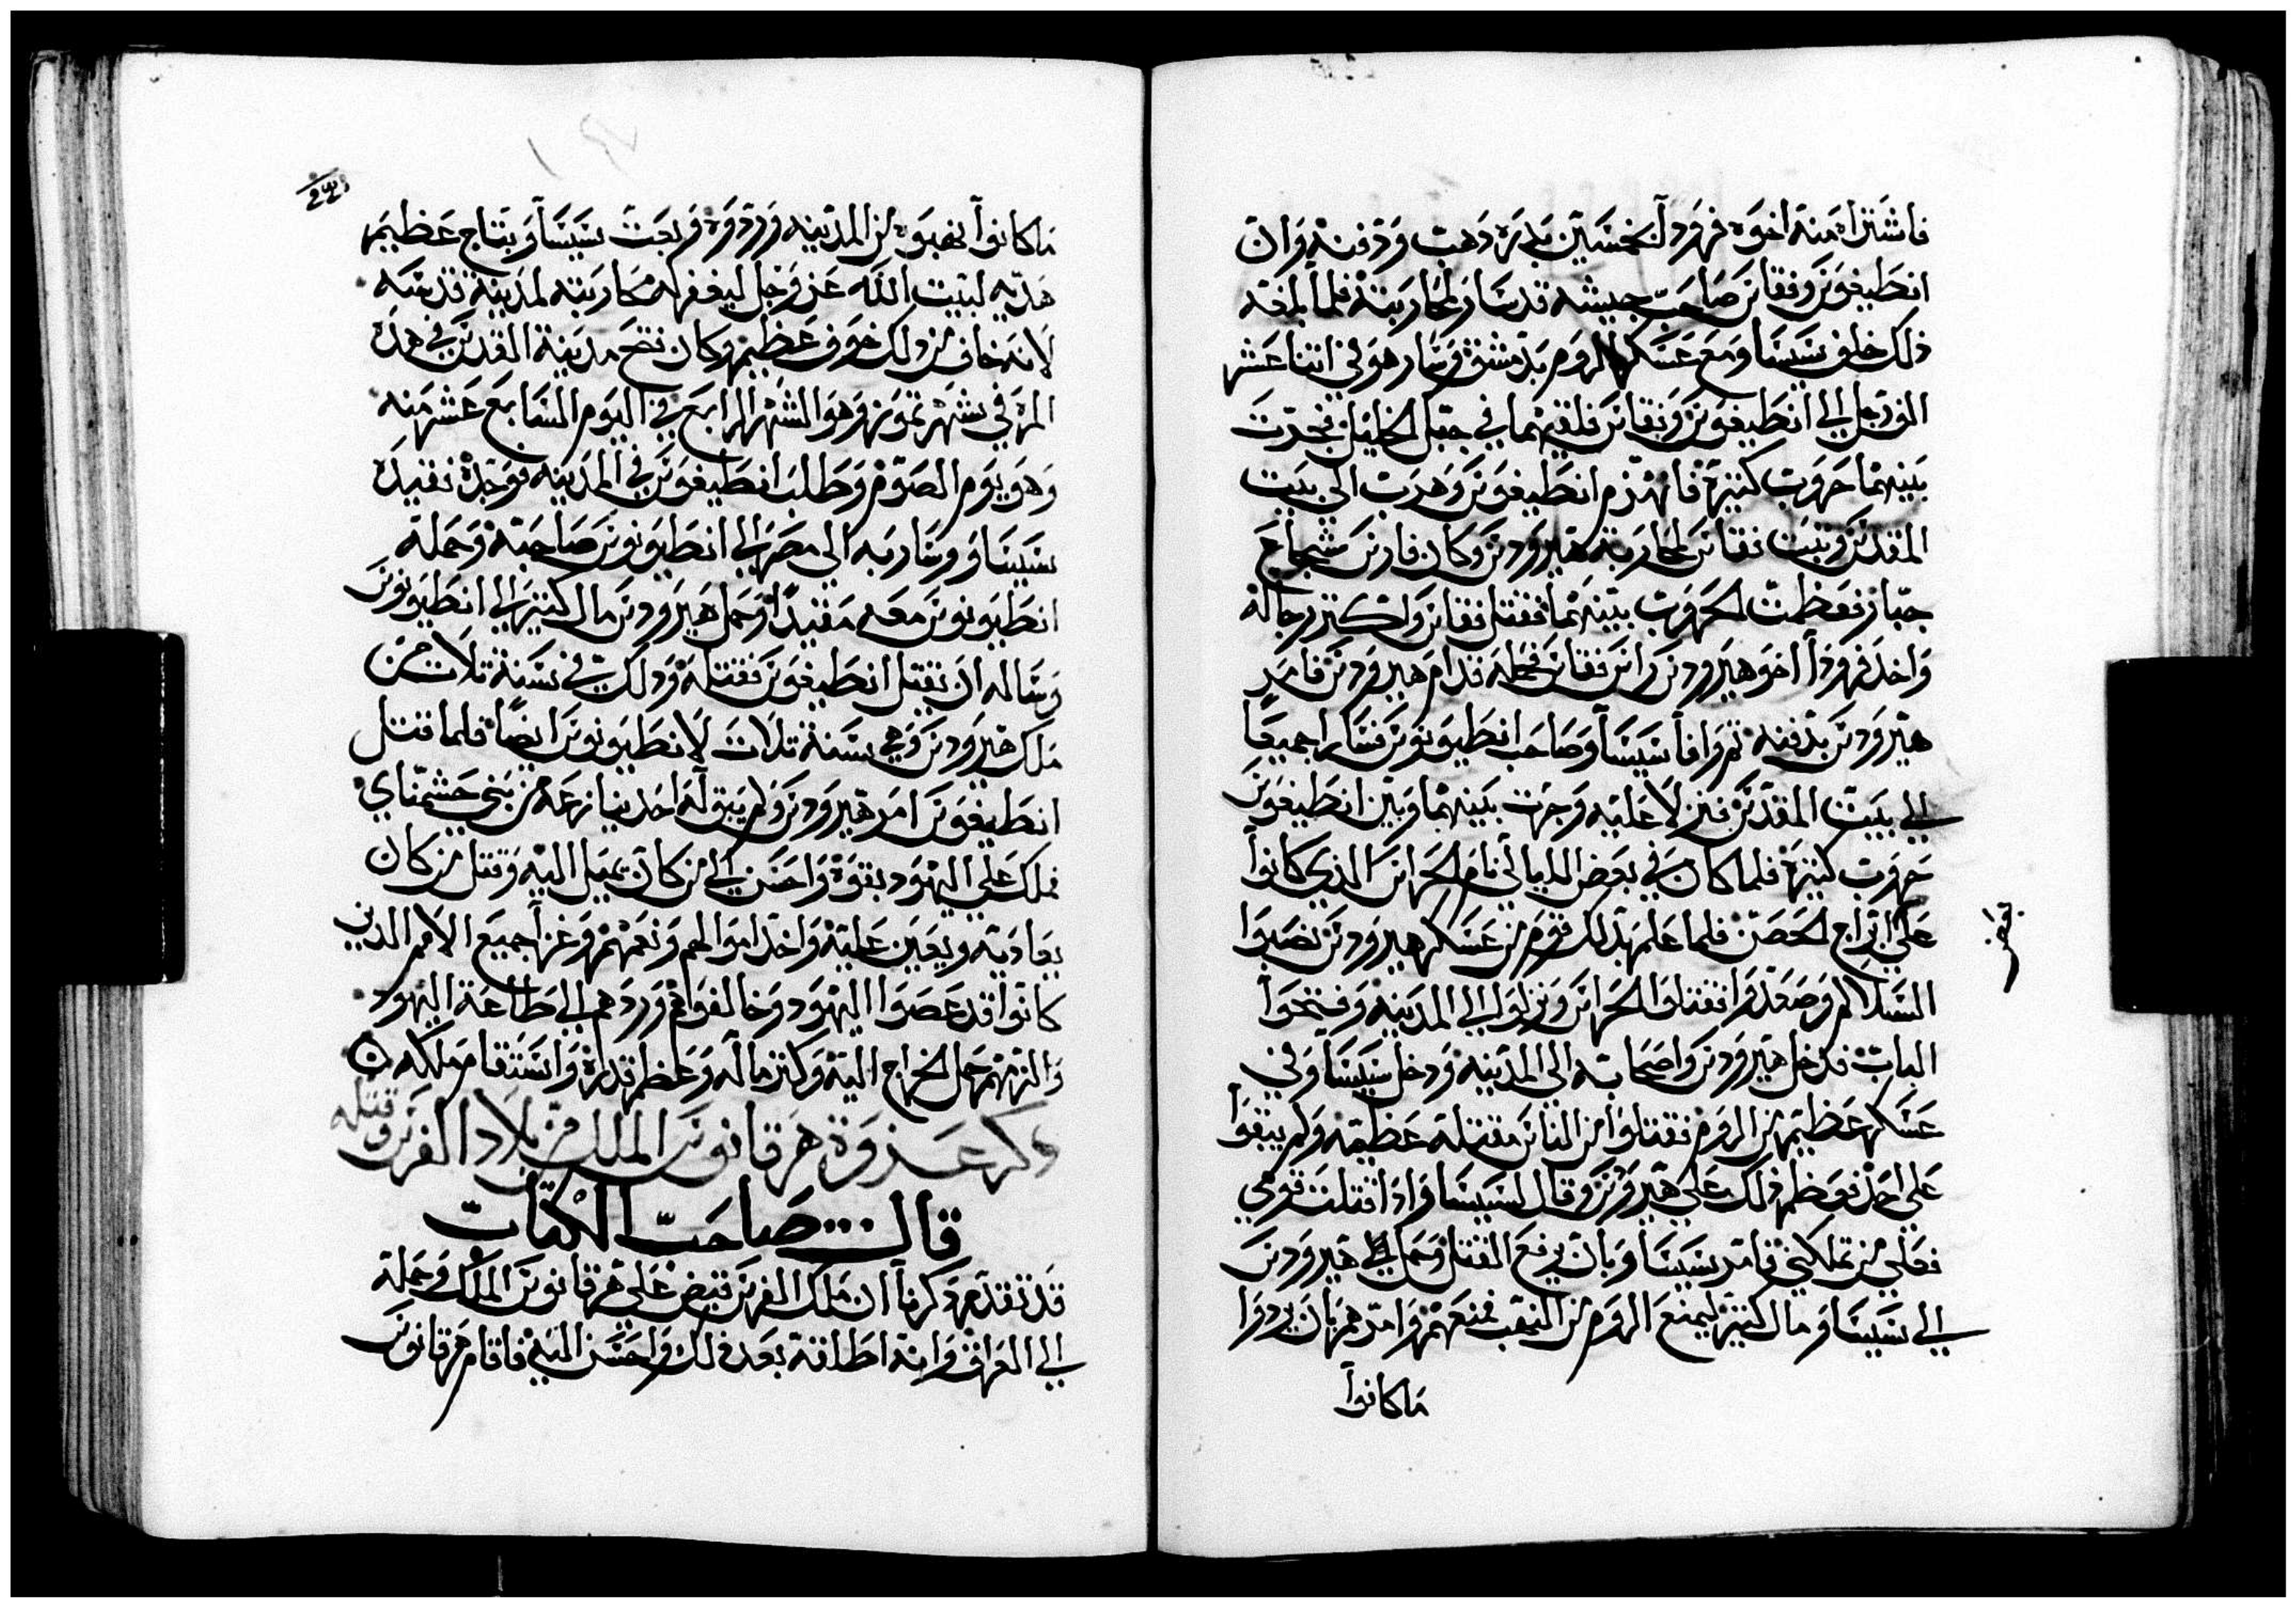 فاشتراه منه اخوه فرودا بخمسين بدره دهب ودفنه وان
انطيغونس وفقاس صاحب جيشه قد سار لمحاربته فلما بلغه
ذلك خلف سيساو مع عسكر الروم بدمشق وسار هو في اتنا عشر
الف رجل الي انطيغونس وفقاس فلقيهما في جبل الخليل فجرت
بينهما حروب كتيرة فانهزم انطيغونس وهرب الي بيت
المقدس وتبت فقاس لمحاربة هيرودس وكان فارس شجاع
جبار فعظمت الحروب بينهما فقتل فقاس واكتر رجاله
واخد فرودا اخو هيرودس راس فقاس فحمله قدام هيرودس فامر
هيرودس بدفنه تم وافا سيساو صاحب انطيونونس فسارا جميعا
الي بيت المقدس فنزلا عليه وجرت بينهما وبين انطيغونس
حروب كتيرة فلما كان في بعض الليالي نام الحراس الذي كانوا
علي ابراج الحصن فلما علم بذلك قوم من عسكر هيرودس نصبوا
بعض
السلالم وصعدوا فقتلوا الحراس ونزلوا الي المدينه وفتحوا
الباب فدخل هيرودس واصحابه الي المدينه ودخل سيساو في
عسكر عظيم من الروم فقتلوا من الناس مقتله عظيمه ولم يبقوا
علي احد فعظم ذلك علي هيرودس وقال لسيساو ادا قتلت قومي
فعلي من تملكني فامر سيساو بان يرفع القتل وحمل هيرودس
الي سيساو مال كتير ليمنع الروم من النهب فمنعهم وامرهم بان يردوا
ماكانوا
ماكانوا نهبوه من المدينه وردوه وبعت سيساو بتاج عظيم
هديه لبيت الله عز وجل ليغفر له محاربته لمدينة قدسه
لانه خاف من ذلك خوف عظيم وكان فتح مدينة المقدس في هده
المره في شهر تموز وهو الشهر الرابع في اليوم السابع عشر منه
وهو يوم الصوم وطلب انطيغونس في المدينه فوجده فقيده
سيساو وسار به الي مصر الي انطيونونس صاحبه وحمله
انطيونونس معه مقيدا وحمل هيرودس مال كتير الي انطيونونس
وساله ان يقتل انطيغونس فقتله ودلك في سنة تلات من
ملك هيرودس وهي سنة تلات لانطيونونس ايضا فلما قتل
انطيغونس امر هيرودس ولم يبق له احد ينازعه من بني حشمناي
فملك علي اليهود بقوة واحسن الي من كان يميل اليه وقتل من كان
يعاديه ويعين عليه واخد اموالهم ونعمهم وغزا جميع الامم الدين
كانوا قد عصوا اليهود وخالفوهم وردهم الي طاعة اليهود
والزمهم حمل الخراج اليه وكتر ماله وعظم قدره واستقام ملكه
دكر عزوة هرقانوس الملك من بلاد الفرس وقتله
قال صاحب الكتاب
قد تقدم دكرنا ان ملك الفرس قبض علي هرقانوس الملك وحمله
الي العراق وانه اطلقه بعد ذلك واحسن اليه فاقام هرقانوس